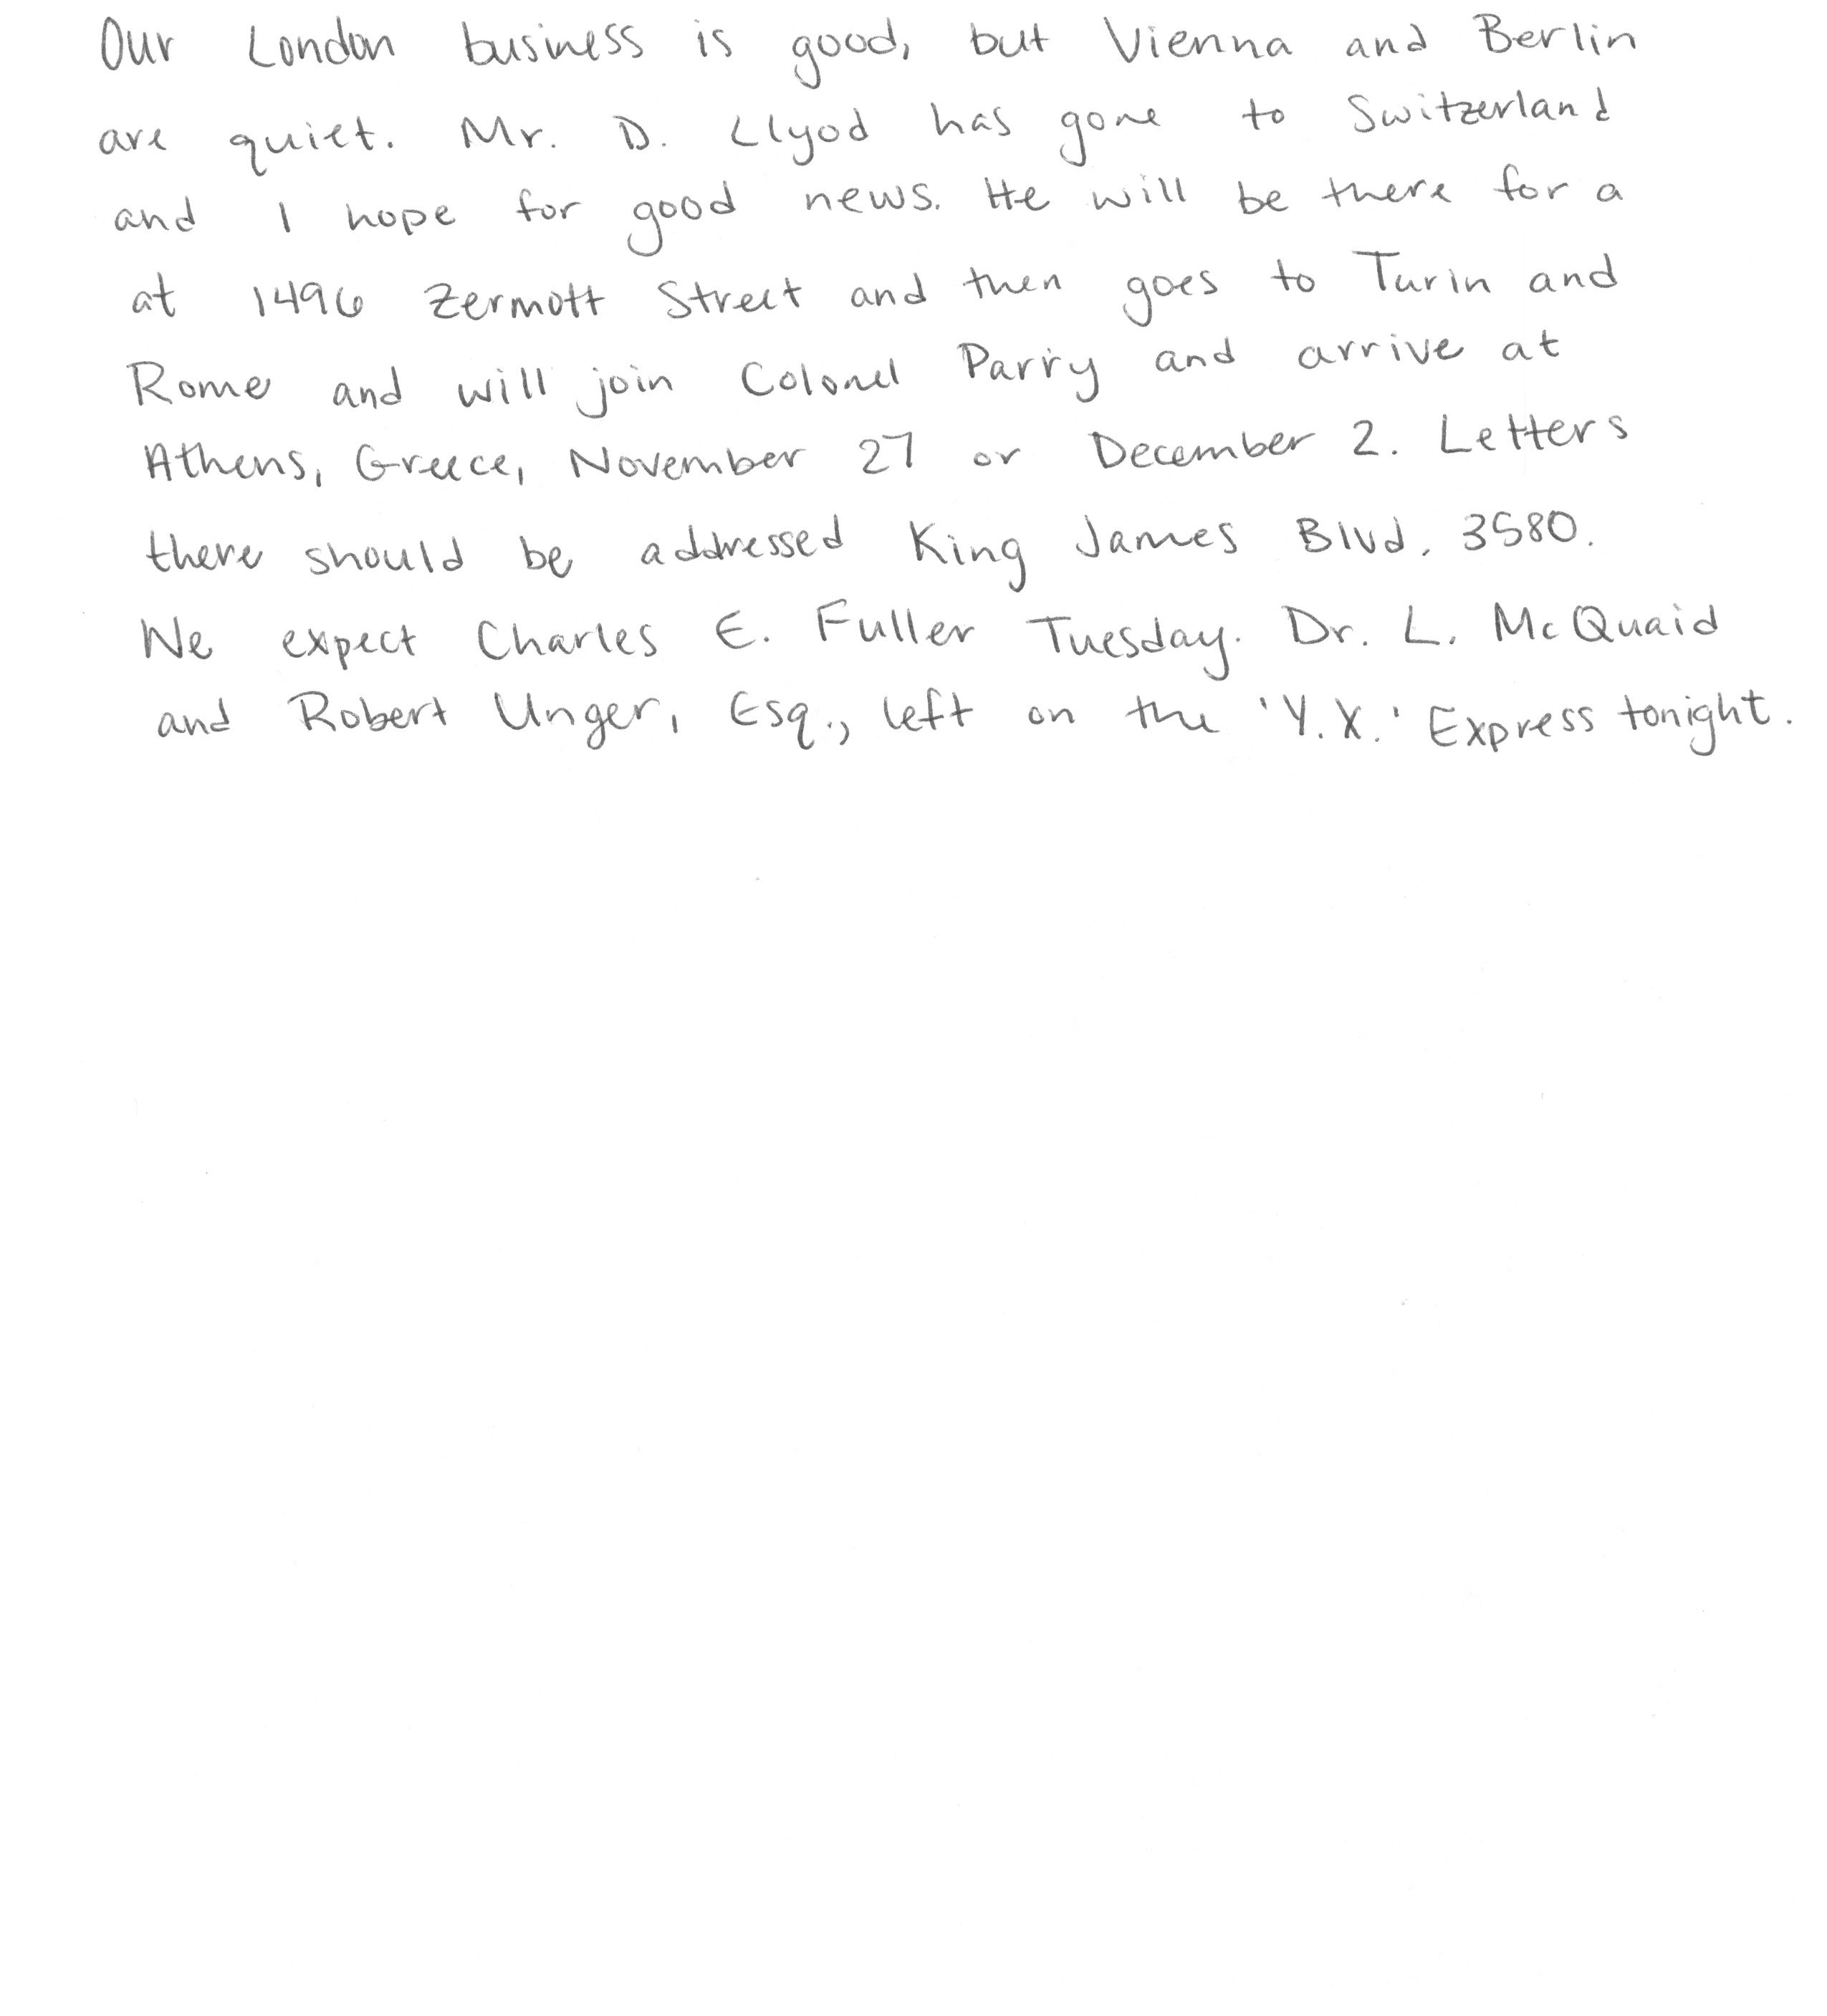 Our London business is good, but Vienna and Berlin
are quiet. Mr. D. Llyod has gone to Switzerland
and I hope for good news. He will be there for a
at 1496 Zermott Street and then goes to Turin and
Rome and will join Colonel Parry and arrive at
Athens, Greece, November 27 or December 2. Letters
there should be addressed King James Blvd. 3580.
We expect Charles E. Fuller Tuesday. Dr. L. McQuaid
and Robert Unger, Esq., left on the 'Y.X.' Express tonight.